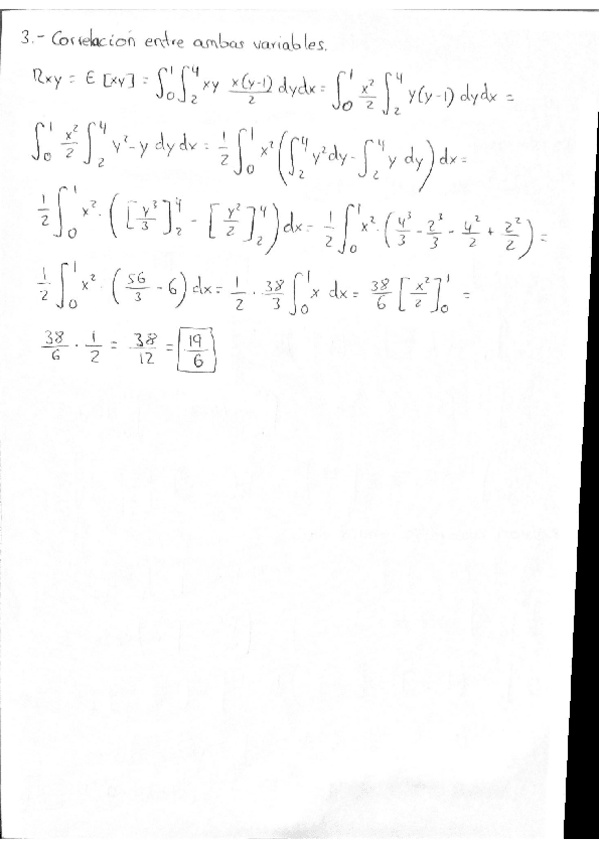 3.- Correlación entre ambas variables.
Rxy = E [xy] = ∫₀¹ ∫₂⁴ xy x(y-1)/2 dy dx = ∫₀¹ x²/2 ∫₂⁴ y(y-1) dy dx =
∫₀¹ x²/2 ∫₂⁴ y²-y dy dx = 1/2 ∫₀¹ x² (∫₂⁴ y² dy - ∫₂⁴ y dy) dx =
1/2 ∫₀¹ x² · ([y³/3]₂⁴ - [y²/2]₂⁴) dx = 1/2 ∫₀¹ x² · (4³/3 - 2³/3 - 4²/2 + 2²/2) =
1/2 ∫₀¹ x² · (56/3 - 6) dx = 1/2 · 38/3 ∫₀¹ x dx = 38/6 [x²/2]₀¹ =
38/6 · 1/2 = 38/12 = 19/6